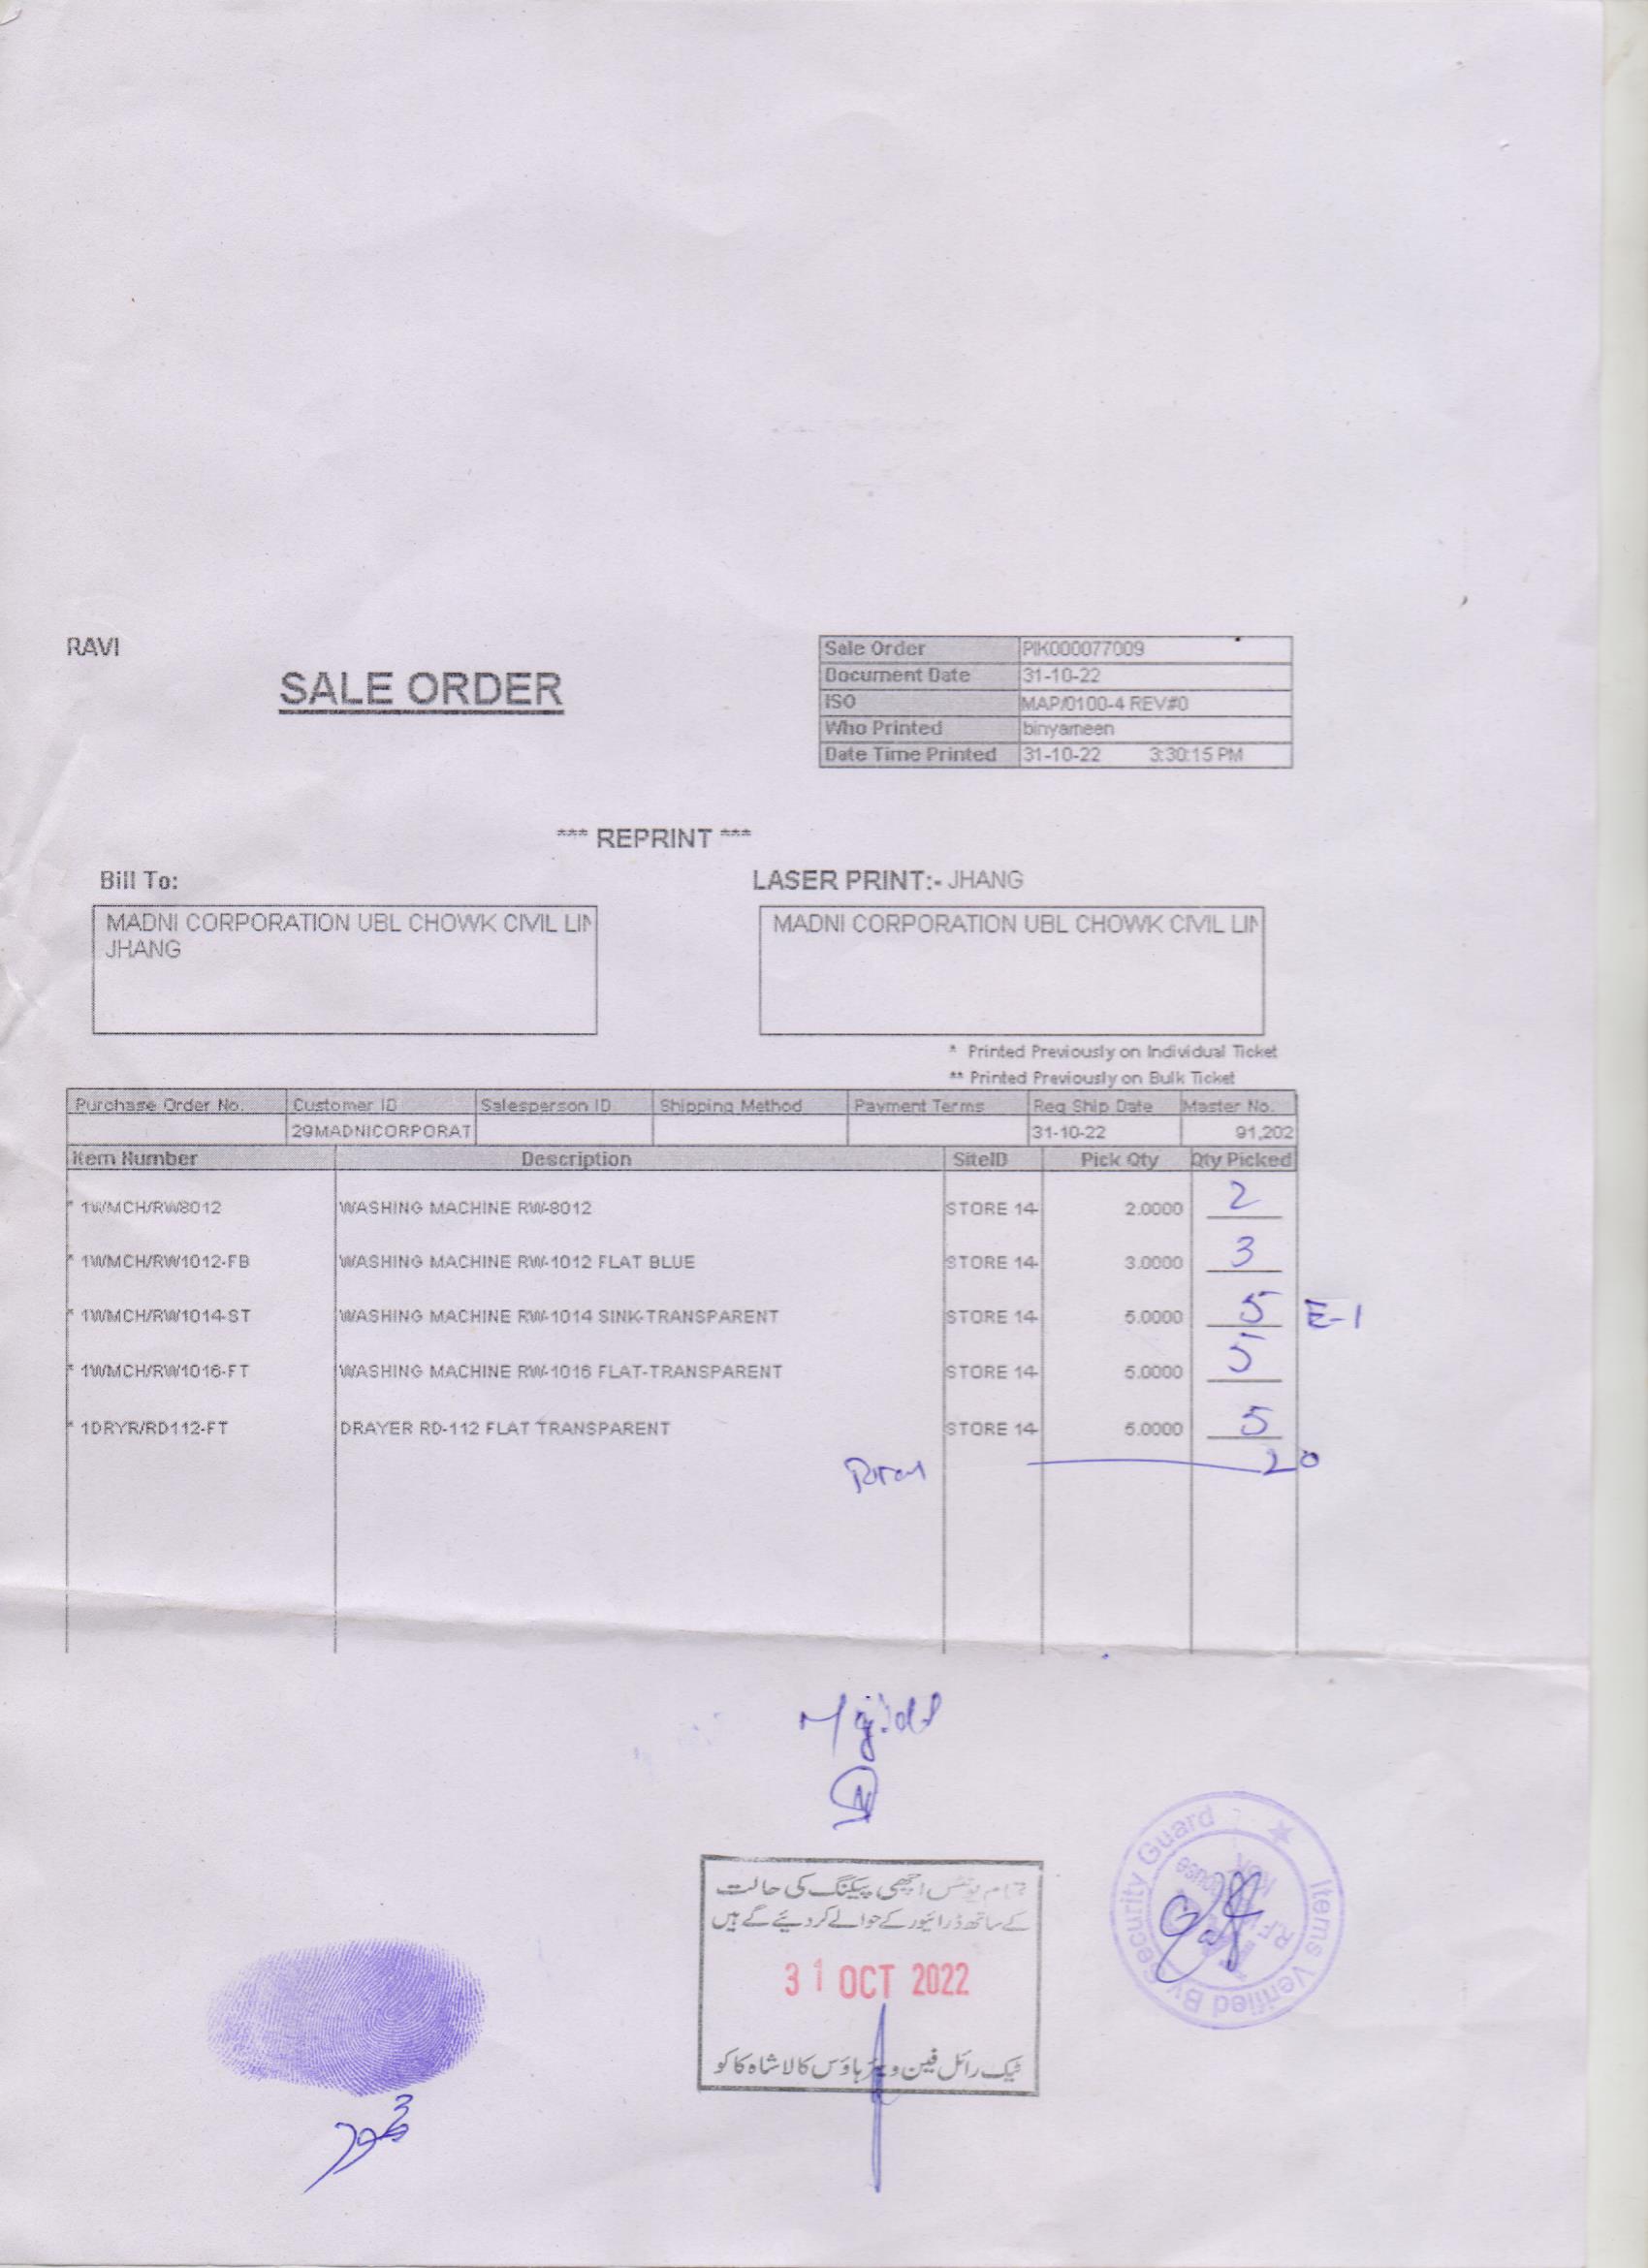 RAVI
SALE ORDER
Sale Order PIK000077009
Document Date 31-10-22
ISO MAP/0100-4 REV#0
Who Printed binyameen
Date Time Printed 31-10-22 3:30:15 PM
*** REPRINT ***
Bill To: LASER PRINT:- JHANG
MADNI CORPORATION UBL CHOWK CIVIL LIN MADNI CORPORATION UBL CHOWK CIVIL LIN
JHANG
* Printed Previously on Individual Ticket
** Printed Previously on Bulk Ticket
Purchase Order No. Customer ID Salesperson ID Shipping Method Payment Terms Req Ship Date Master No.
29MADNICORPORAT 31-10-22 91,202
Item Number Description SiteID Pick Qty Qty Picked
* 1WMCH/RW8012 WASHING MACHINE RW-8012 STORE 14- 2.0000 2
* 1WMCH/RW1012-FB WASHING MACHINE RW-1012 FLAT BLUE STORE 14- 3.0000 3
* 1WMCH/RW1014-ST WASHING MACHINE RW-1014 SINK-TRANSPARENT STORE 14- 5.0000 5 E-1
* 1WMCH/RW1016-FT WASHING MACHINE RW-1016 FLAT-TRANSPARENT STORE 14- 5.0000 5
* 1DRYR/RD112-FT DRAYER RD-112 FLAT TRANSPARENT STORE 14- 5.0000 5
Total 20
تمام یونٹس اچھی پیکنگ کی حالت
کے ساتھ ڈرائیور کے حوالے کر دیئے گے ہیں
31 OCT 2022
ٹیک رائل فین ویئر ہاؤس کالا شاہ کاکو
Items Verified By Security Guard